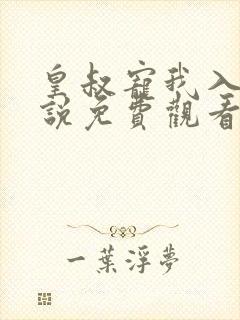 皇叔寵我入
說免費觀看
一葉浮夢